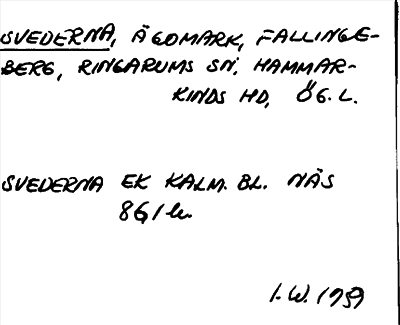 SVEDERNA, ÄGOMARK, FALLINGE-
BERG, RINGARUMS SN, HAMMAR-
KINDS HD, ÖG. L.
SVEDERNA EK KALM. BL. NÄS
8G1
I. W. 1959